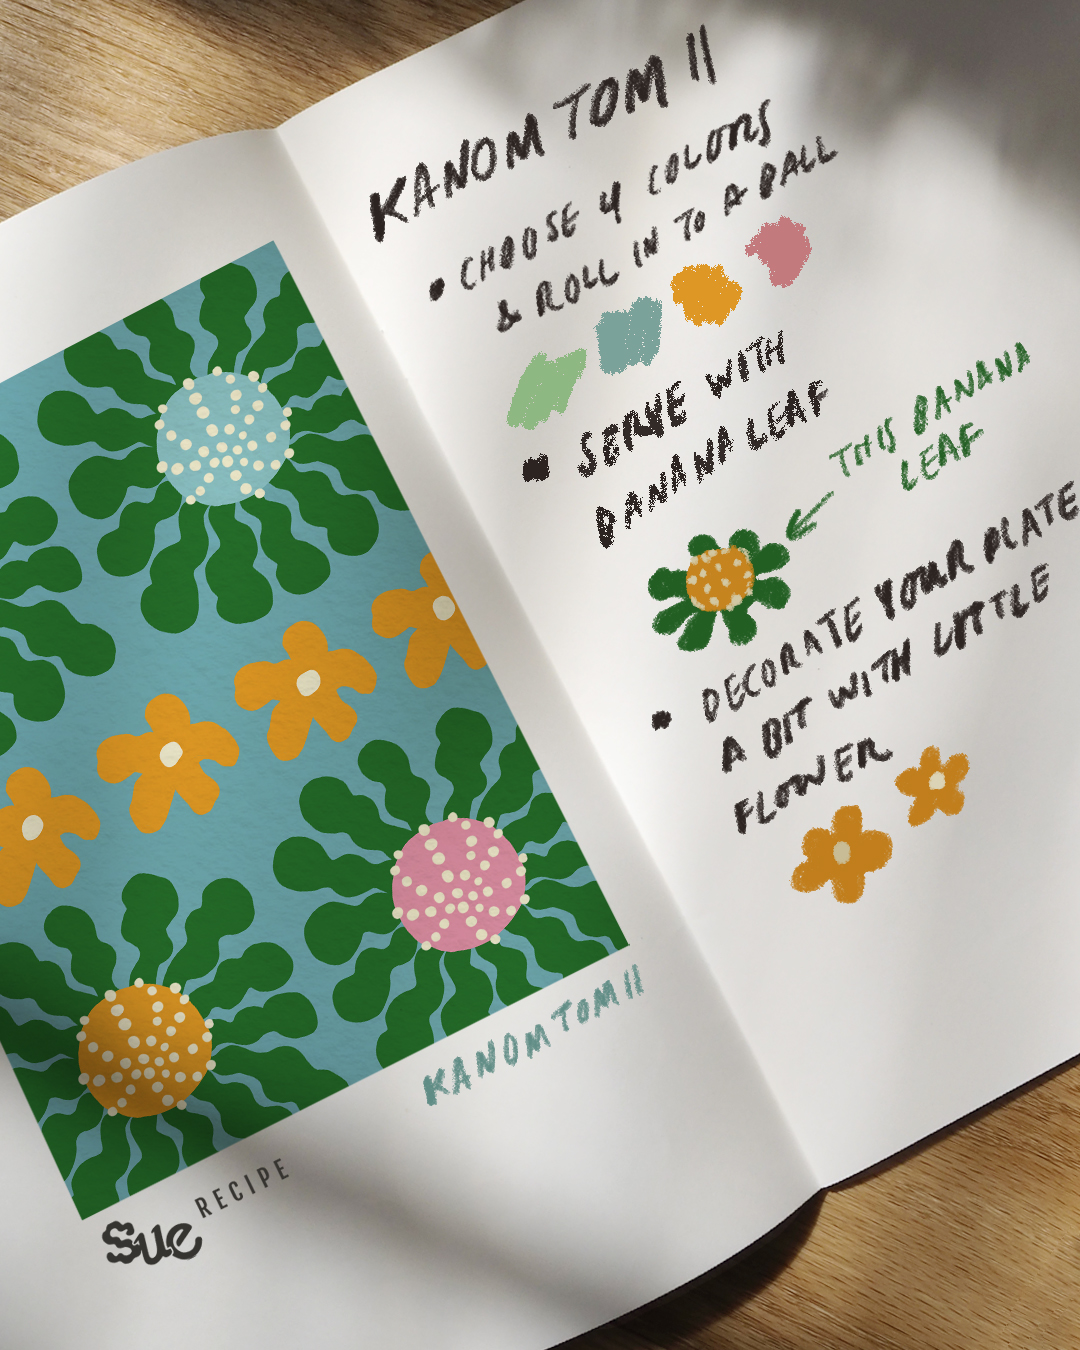 KANOM TOM II
• CHOOSE 4 COLORS
& ROLL IN TO A BALL
▪ SERVE WITH
BANANA LEAF
THIS BANANA
LEAF
• DECORATE YOUR PLATE
A BIT WITH LITTLE
FLOWER
KANOM TOM II
Sue RECIPE